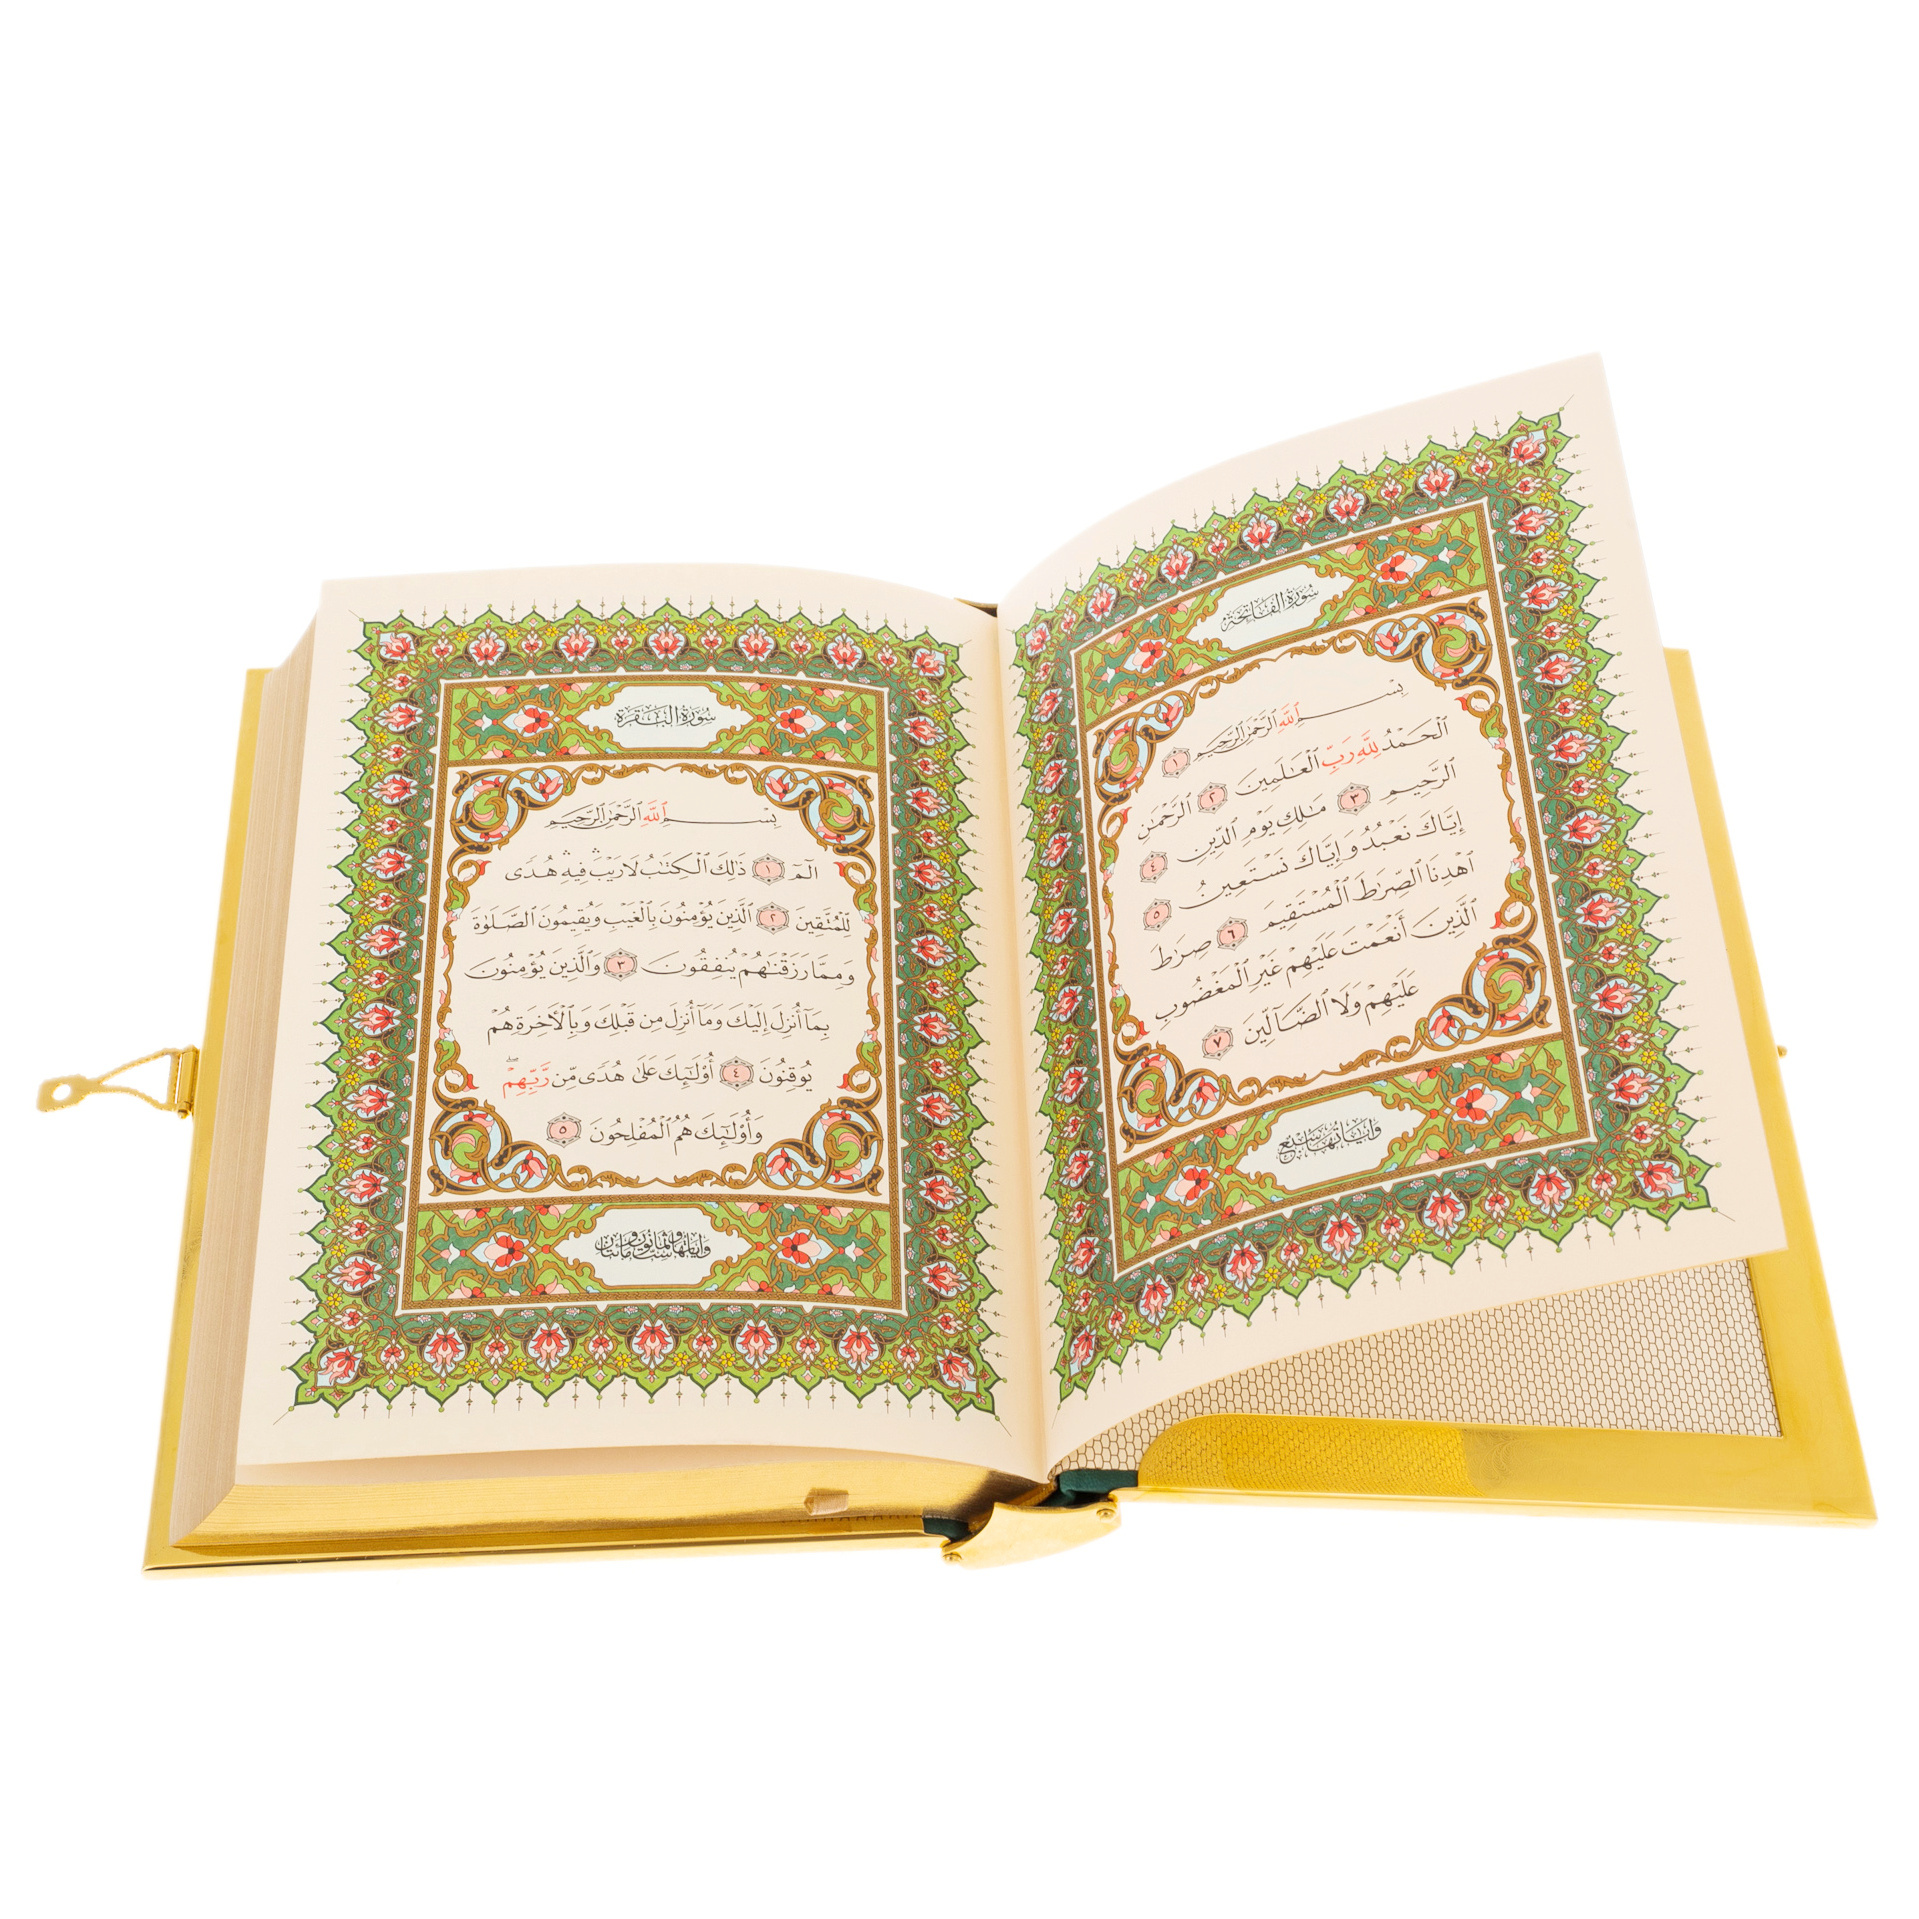 سُورَةُ الفَاتِحَةِ
بِسْمِ ٱللَّهِ ٱلرَّحْمَٰنِ ٱلرَّحِيمِ ١
ٱلْحَمْدُ لِلَّهِ رَبِّ ٱلْعَٰلَمِينَ ٢ ٱلرَّحْمَٰنِ
ٱلرَّحِيمِ ٣ مَٰلِكِ يَوْمِ ٱلدِّينِ ٤
إِيَّاكَ نَعْبُدُ وَإِيَّاكَ نَسْتَعِينُ ٥
ٱهْدِنَا ٱلصِّرَٰطَ ٱلْمُسْتَقِيمَ ٦ صِرَٰطَ
ٱلَّذِينَ أَنْعَمْتَ عَلَيْهِمْ غَيْرِ ٱلْمَغْضُوبِ
عَلَيْهِمْ وَلَا ٱلضَّآلِّينَ ٧
وَآيَاتُهَا سَبْعٌ
سُورَةُ البَقَرَةِ
بِسْمِ ٱللَّهِ ٱلرَّحْمَٰنِ ٱلرَّحِيمِ
الٓمٓ ١ ذَٰلِكَ ٱلْكِتَٰبُ لَا رَيْبَۛ فِيهِۛ هُدًى
لِّلْمُتَّقِينَ ٢ ٱلَّذِينَ يُؤْمِنُونَ بِٱلْغَيْبِ وَيُقِيمُونَ ٱلصَّلَوٰةَ
وَمِمَّا رَزَقْنَٰهُمْ يُنفِقُونَ ٣ وَٱلَّذِينَ يُؤْمِنُونَ
بِمَآ أُنزِلَ إِلَيْكَ وَمَآ أُنزِلَ مِن قَبْلِكَ وَبِٱلْأَخِرَةِ هُمْ
يُوقِنُونَ ٤ أُوْلَٰٓئِكَ عَلَىٰ هُدًى مِّن رَّبِّهِمْۖ
وَأُوْلَٰٓئِكَ هُمُ ٱلْمُفْلِحُونَ ٥
وَآيَاتُهَا سِتٌّ وَثَمَانُونَ وَمِائَتَانِ